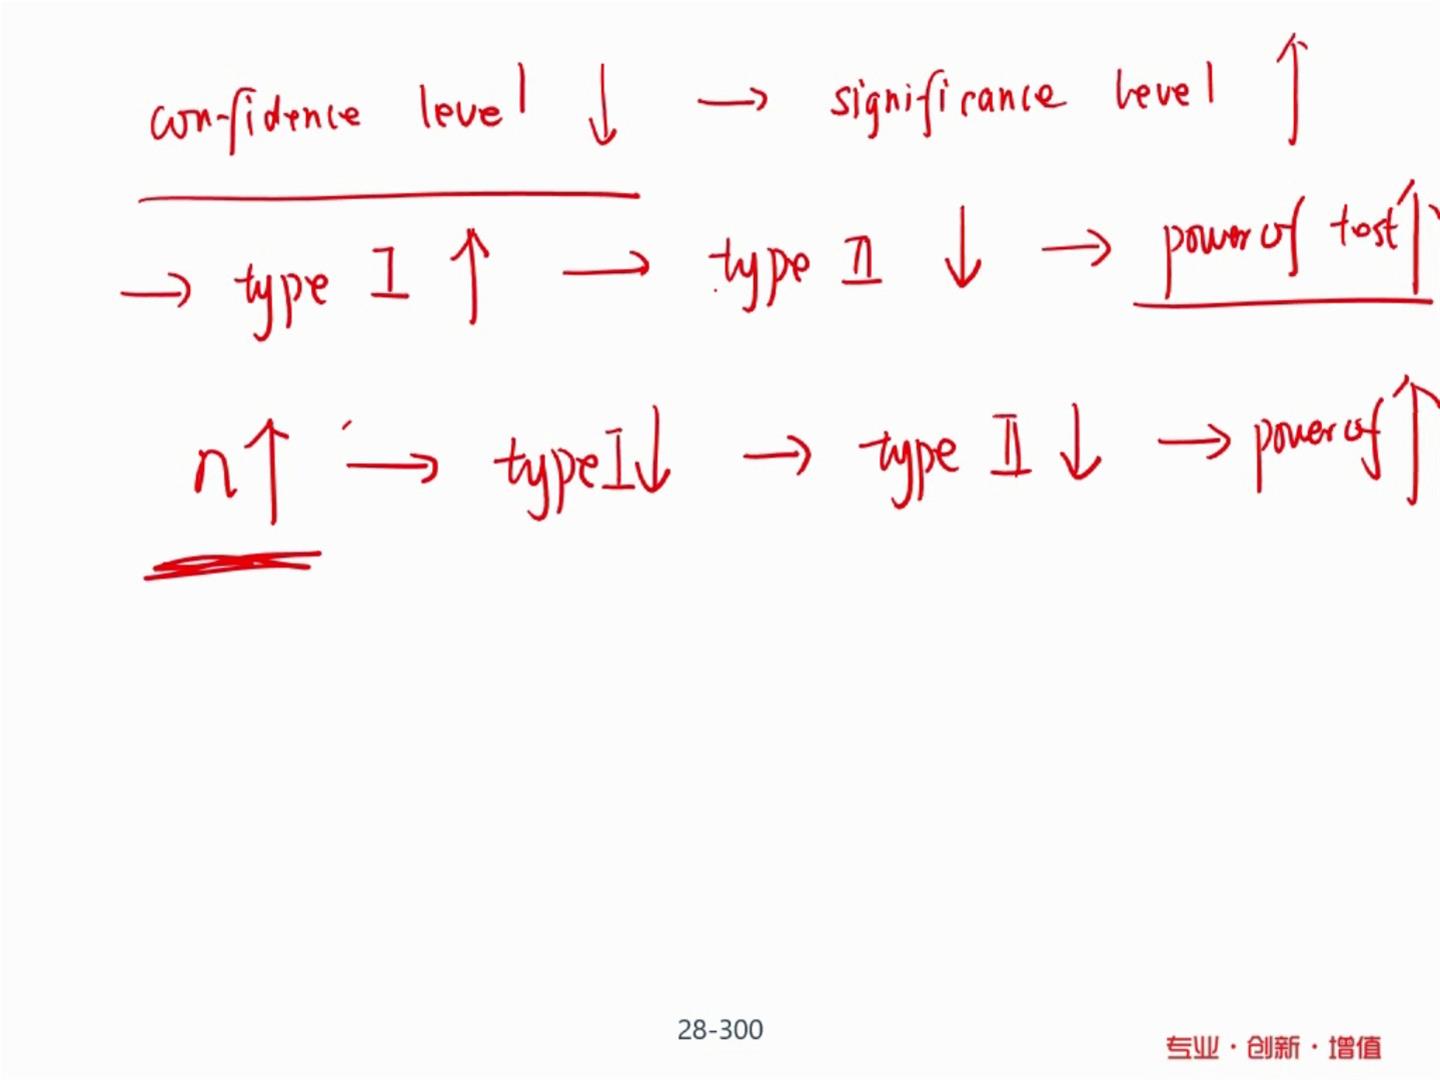 confidence level ↓ → significance level ↑
→ type I ↑ → type II ↓ → power of test ↑
n ↑ → type I ↓ → type II ↓ → power of ↑
28-300
专业·创新·增值